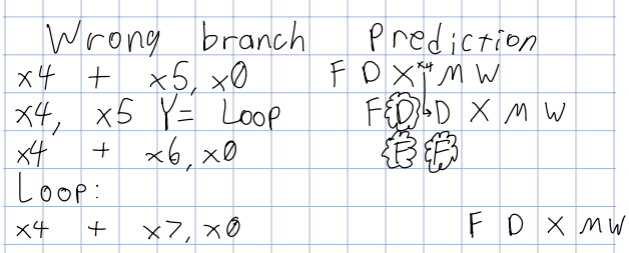 Wrong branch Prediction
x4 + x5, x0 F D X x4 M W
x4, x5 Y= Loop F D D X M W
x4 + x6, x0 F F
Loop:
x4 + x7, x0 F D X M W